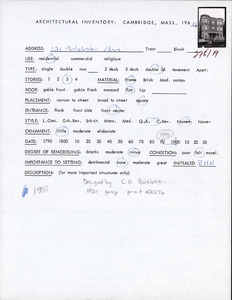 ARCHITECTURAL INVENTORY: CAMBRIDGE, MASS., 196
ADDRESS: 131 Ave Tract Block
USE: residential commercial religious
TYPE: single double row 2 deck 3 deck double 3d tenement Apart.
STORIES: 1 2 3 4 MATERIAL: Frame Brick Mod. compo
ROOF: gable front gable flank mansard flat hip
PLACEMENT: narrow to street broad to street square
ENTRANCE: front side front center
STYLE: L.Geor. Grk.Rev. Brkt. Mans. Med. Q.A. C.Rev.
ORNAMENT: little moderate elaborate
DATE: 1790 1800 10 20 30 40 50 60 70 80 90 1900 10 20 30
DEGREE OF REMODELING: drastic moderate minor CONDITION: poor fair excel.
IMPORTANCE TO SETTING: detrimental none moderate great INITIALED RHN
DESCRIPTION: (for more important structures only)
Designed by C.H.
1905 garage permit